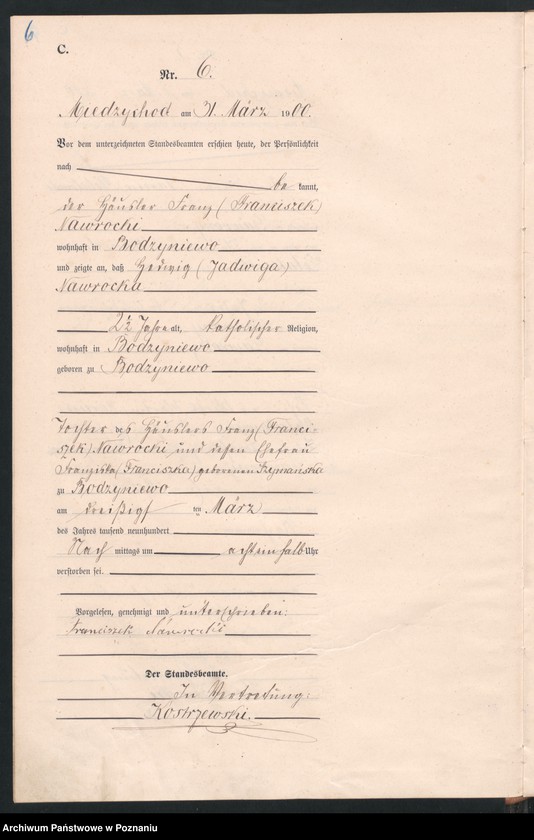 6
C.
Nr. 6.
Miedzychod am 31. März 1900.
Vor dem unterzeichneten Standesbeamten erschien heute, der Persönlichkeit
nach
be kannt,
der Häusler Franz (Franciszek)
Nawrocki
wohnhaft in Bodzyniewo
und zeigte an, daß Hedwig (Jadwiga)
Nawrocka
2½ Jahre alt, katholischer Religion,
wohnhaft in Bodzyniewo
geboren zu Bodzyniewo
Tochter des Häuslers Franz (Franci-
szek) Nawrocki und dessen Ehefrau
Franziska (Franciszka) geborenen Szymańska
zu Bodzyniewo
am dreißigs ten März
des Jahres tausend neunhundert
Nach mittags um acht ein halb Uhr
verstorben sei.
Vorgelesen, genehmigt und unterschrieben:
Franciszek Nawrocki
Der Standesbeamte.
In Vertretung:
Kostrzewski.
Archiwum Państwowe w Poznaniu